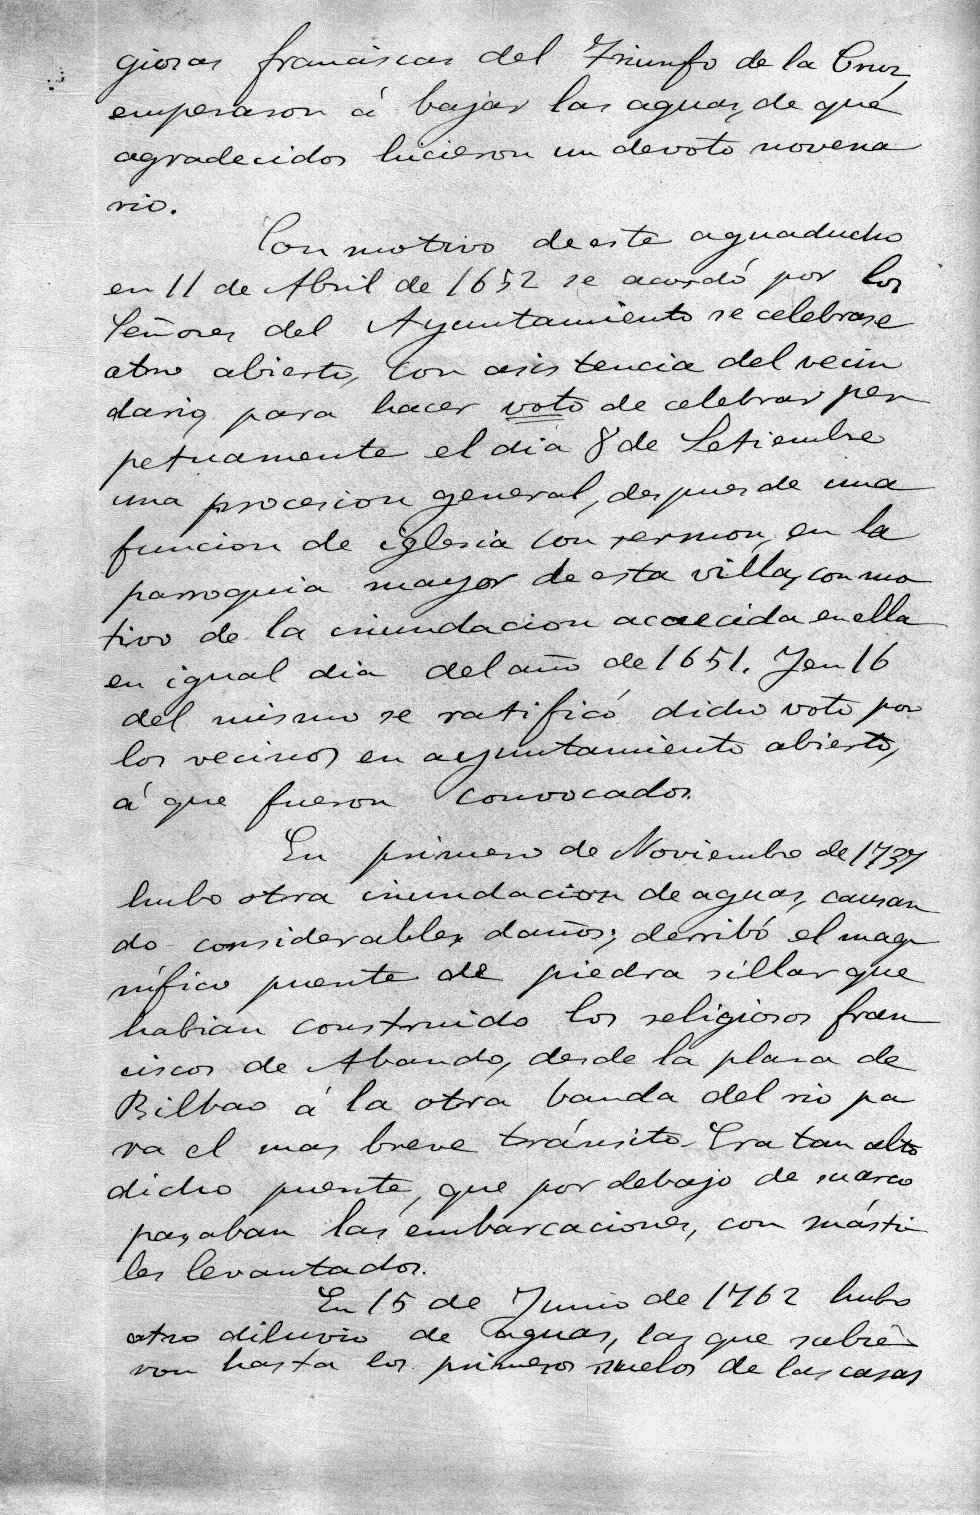 giosas franciscas del Triunfo de la Cruz,
empesaron á bajar las aguas, de qué
agradecidos hicieron un devoto novena
rio.
Con motivo de este aguaducho
en 11 de Abril de 1652 se acordó por los
Señores del Ayuntamiento se celebrase
otro abierto, con asistencia del vecin
dario, para hacer voto de celebrar per
petuamente el dia 8 de Setiembre
una procesion general, despues de una
funcion de iglesia con sermon, en la
parroquia mayor de esta villa, con mo
tivo de la inundacion acaecida en ella
en igual dia del año de 1651. Y en 16
del mismo se ratificó dicho voto por
los vecinos en ayuntamiento abierto,
á que fueron convocados.
En primero de Noviembre de 1737
hubo otra inundacion de aguas, causan
do considerables daños; derribó el mag
nífico puente de piedra sillar que
habian construido los religiosos fran
ciscos de Abando, desde la plaza de
Bilbao á la otra banda del rio pa
ra el mas breve tránsito. Era tan alto
dicho puente, que por debajo de su arco
pasaban las embarcaciones, con másti
les levantados.
En 15 de Junio de 1762 hubo
otro diluvio de aguas, las que subie
ron hasta los primeros suelos de las casas